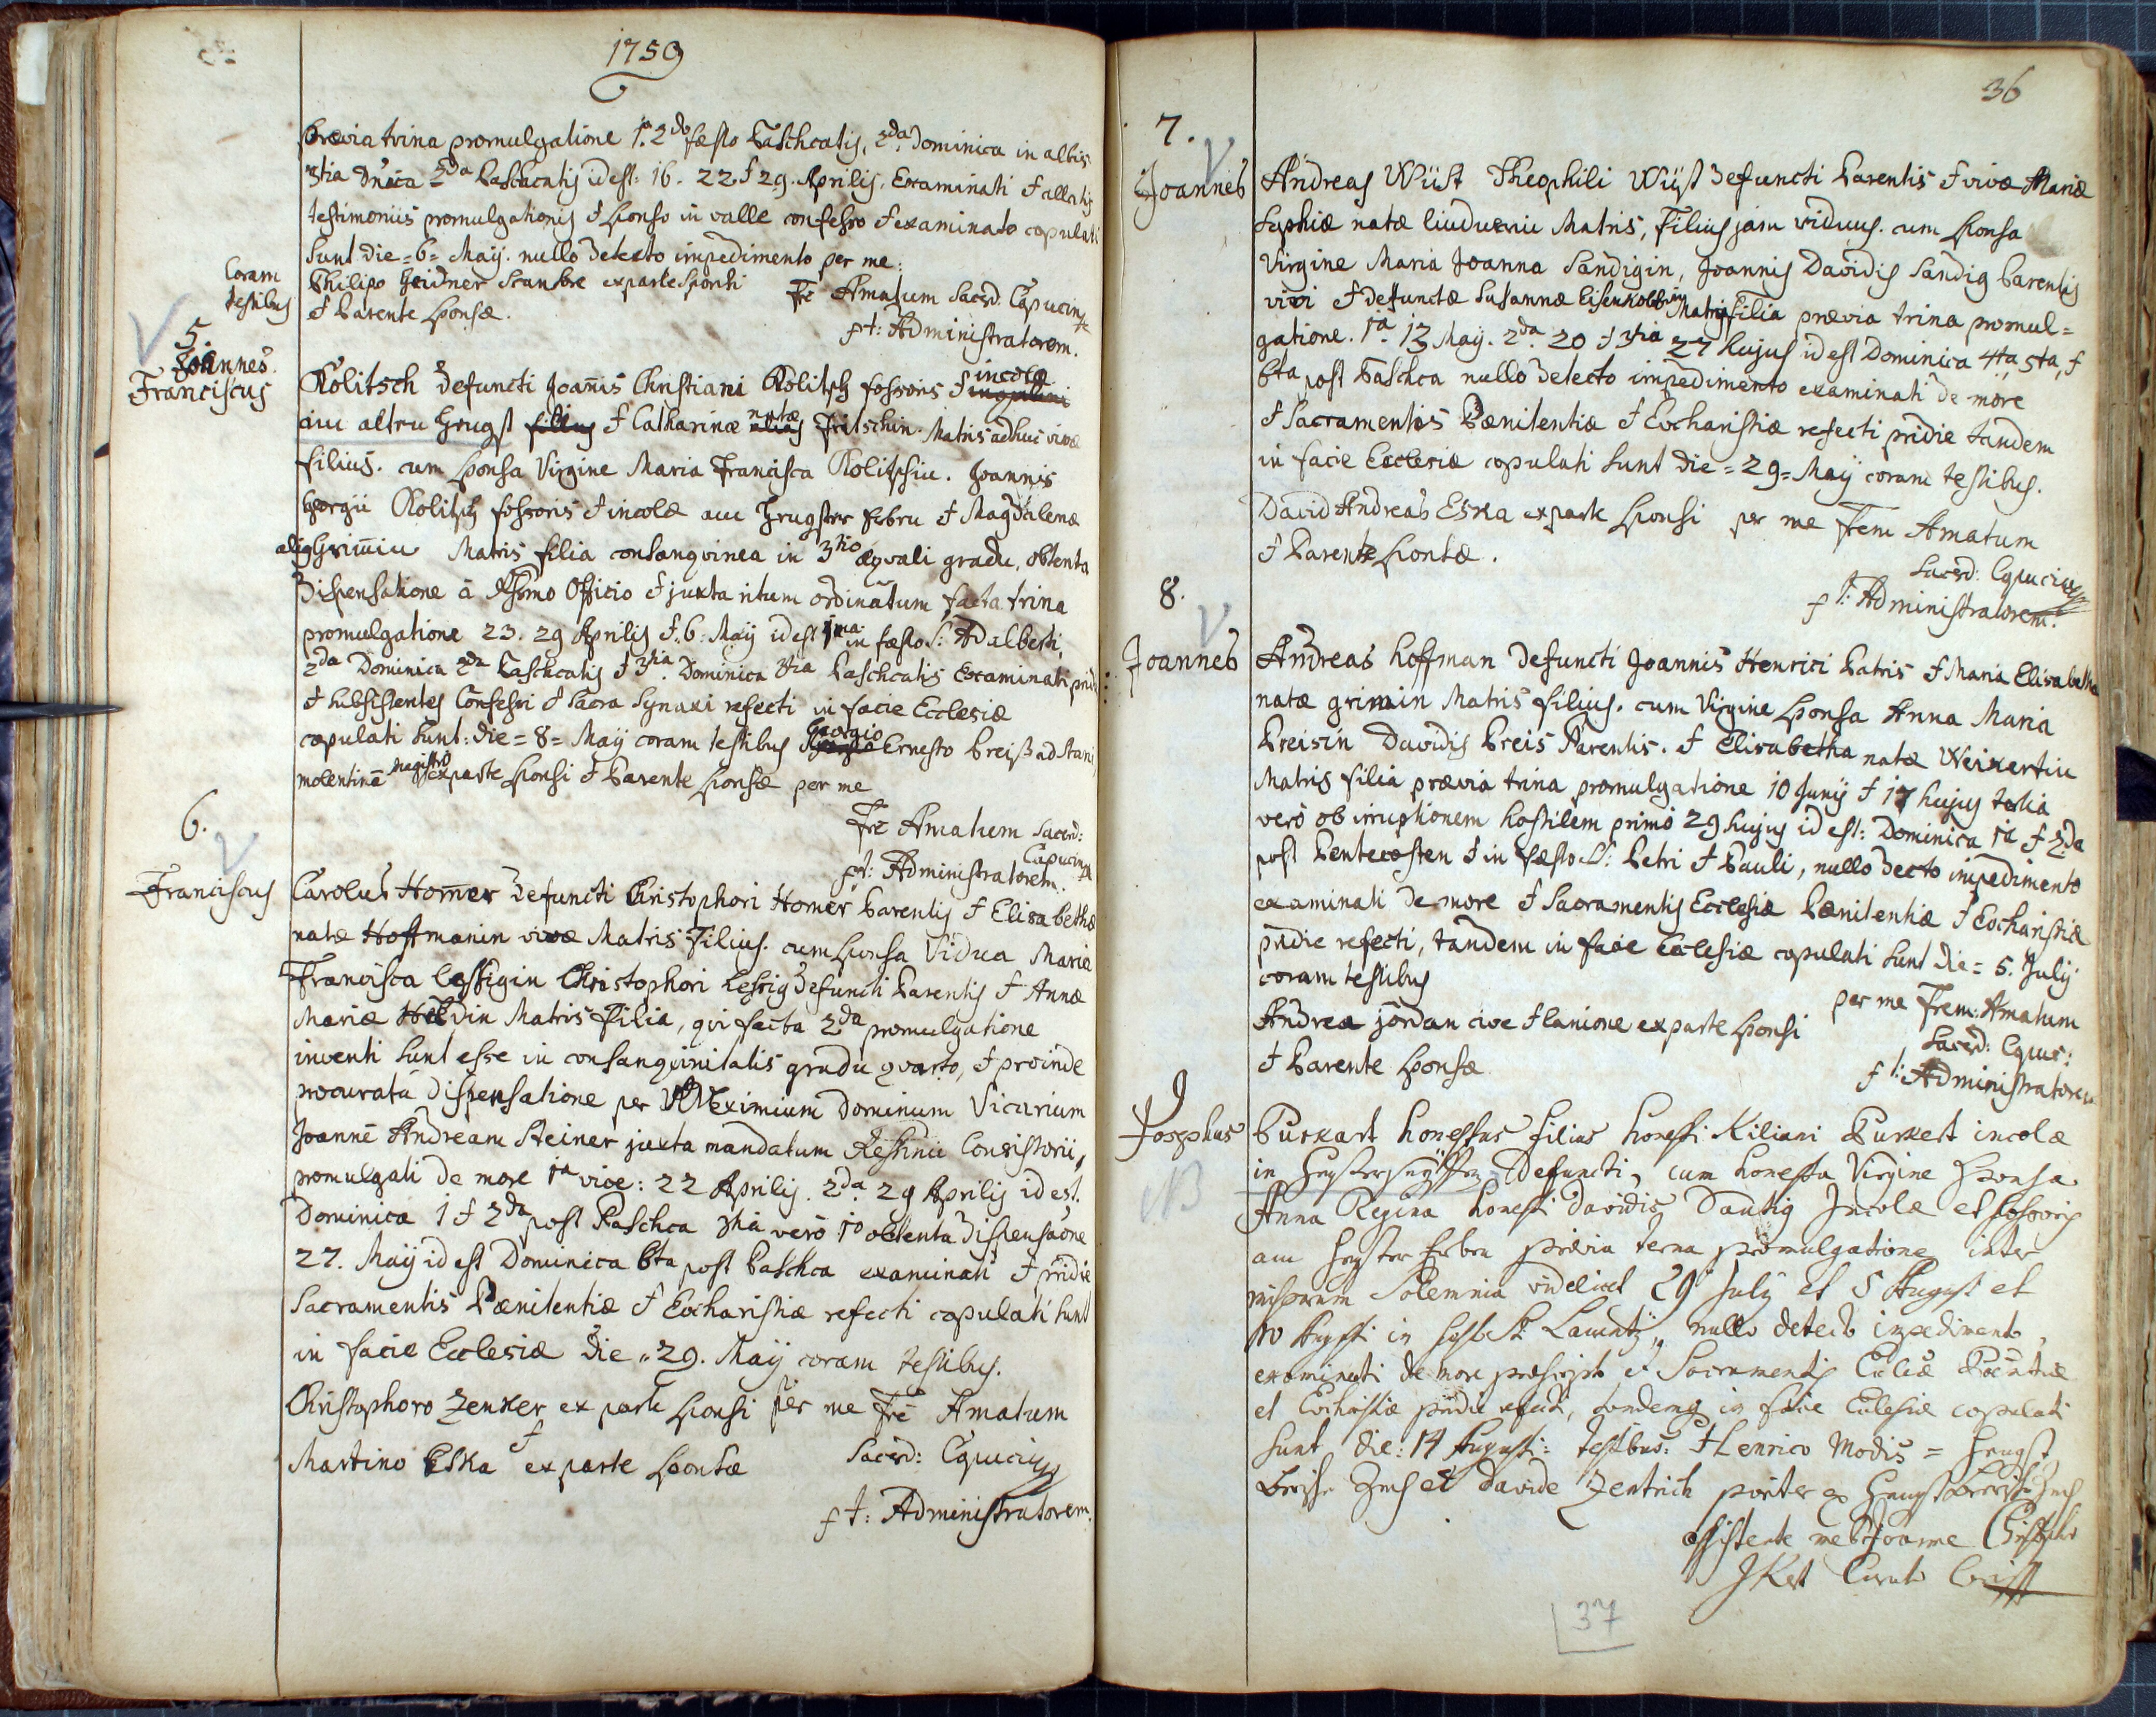 1759
prævia trina promulgatione 1a. 2do festo Paschatis, 2da. Dominica in albis
3tia Dnica 2da Paschatis id est: 16. 22. & 29. Aprilis. Examinati & allatis
testimoniis promulgationis & Sponso in valle confesso & examinato copulati
sunt die = 6 = Maij. nullo detecto impedimento per me:
Coram testibus
Philipo Geidner ex parte Sponsi
& Parente Sponsæ.
Fre Amatum Sacerd. Capucin
p t: Administratorem.
5.
Joannes
Franciscus
Kolitsch defuncti Joannis Christiani Kolitsch fossoris & incolæ
au altru & Catharinæ natæ Fritschin Matris adhuc vivæ
filius. cum Sponsa Virgine Maria Francisca Kolitschin. Joannis
Georgii Kolitsch fossoris & incolæ & Magdalenæ
Matris filia consanguinea in 3tio æquali gradu, obtenta
Dispensatione à Officio & juxta ritum ordinatum facta trina
promulgatione 23. 29 Aprilis & 6. Maij id est 1ma. in festo S: Adalberti,
2da Dominica 2da Paschatis & 3tia. Dominica 3tia Paschatis Examinati pridie
& subsistentes Confessi & Sacra Synaxi refecti in facie Ecclesiæ
copulati sunt: die = 8 = Maij coram testibus Georgio Ernesto Preiß
magistro ex parte Sponsi & Parente Sponsæ per me
Fre Amatum Sacerd:
Capucin
p t: Administratorem.
6.
Franciscus
Carolus Homer defuncti Christophori Homer Parentis & Elisabethæ
natæ Hoffmanin vivæ Matris Filius. cum Sponsa Vidua Maria
Francisca Lessigin Christophori Lessig defuncti Parentis & Annæ
Mariæ Matris Filia, qui facta 2da promulgatione
inventi sunt esse in consanguinitatis gradu quarto, & proinde
procurata Dispensatione per eximium Dominum Vicarium
Joannē Andream Steiner juxta mandatum Consistorii,
promulgati de more 1a vice: 22 Aprilis. 2da. 29 Aprilis id est.
Dominica 1 & 2da post Pascha 3tia verò 1o obtenta Dispensaone
27. Maij id est Dominica 6ta post Pascha examinati & pridie
Sacramentis Pænitentiæ & Eocharistiæ refecti copulati sunt
in facie Ecclesiæ die = 29. Maij coram testibus.
Christophoro Zenker ex parte Sponsi per me Fre Amatum
& Sacerd: Capucin
Martino Eska ex parte Sponsæ
p t: Administratorem.
36
7.
Joannes
Andreas Wüst Theophili Wüst defuncti Parentis & vivæ Mariæ
Sophiæ natæ Matris, Filius jam viduus. cum Sponsa
Virgine Maria Joanna Sandigin, Joannis Davidis Sandig Parentis
vivi & defunctæ Susannæ Matris filia prævia trina promul=
gatione. 1a. 13 Maij. 2da. 20 & 3tia 27 hujus id est Dominica 4ta 5ta, &
6ta post Pascha nullo detecto impedimento examinati de more
& Sacramentis Pænitentiæ & Eocharistiæ refecti pridie tandem
in facie Ecclesiæ copulati sunt die = 29 = Maij coram testibus.
David Andreas Eska ex parte Sponsi per me Frem Amatum
& Parente Sponsæ.
Sacerd: Capucin
p t: Administratorem.
8.
Joannes
Andreas Hoffman defuncti Joannis Henrici Patris & Maria Elisabetha
natæ grimin Matris filius. cum Virgine Sponsa Anna Maria
Preisin Davidis Preis Parentis. & Elisabetha natæ Weikertin
Matris filia prævia trina promulgatione 10 Junij & 17 hujus tertia
verò ob irruptionem hostilem primò 29 hujus id est: Dominica 1a & 2da
post Pentecosten & in festo SS: Petri & Pauli, nullo detecto impedimento
examinati de more & Sacramentis Ecclesiæ Pænitentiæ & Eocharistiæ
pridie refecti, tandem in facie Ecclesiæ copulati sunt die = 5. July
coram testibus
per me Frem: Amatum
Andrea Jordan cive & lanione ex parte Sponsi
Sacerd: Capuc:
& Parente Sponsæ
p t: Administratorem
9
Josephus
NB
Purkart honestus filius honesti Kiliani Purkert incolæ
in defuncti, cum honesta Virgine Sponsa
Anna Regina honesti Davidis Sandig Incolæ et fossoris
prævia terna promulgatione inter
missarum Solemnia videlicet 29 July et 5 August et
10 Augusti in festo St. Laurentij, nullo detecto impedimento,
examinati de more præscripto et Sacramentis Eccliæ Pœnitentiæ
et Eocharistiæ pridie refecti, tandemq in facie Ecclesiæ copulati
sunt die: 14 Augusti: testibus: Henrico Modis =
et Davide Zentrich pariter ex
assistente me Joanne Christoph
Curato
37